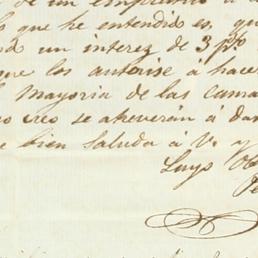 de un empréstito á
lo que he entendido es, que
un interez de 3 p%
que los autorise á hacer
Mayoria de las cama
creo se atreverán á dar
bien saluda á V. y
Luys